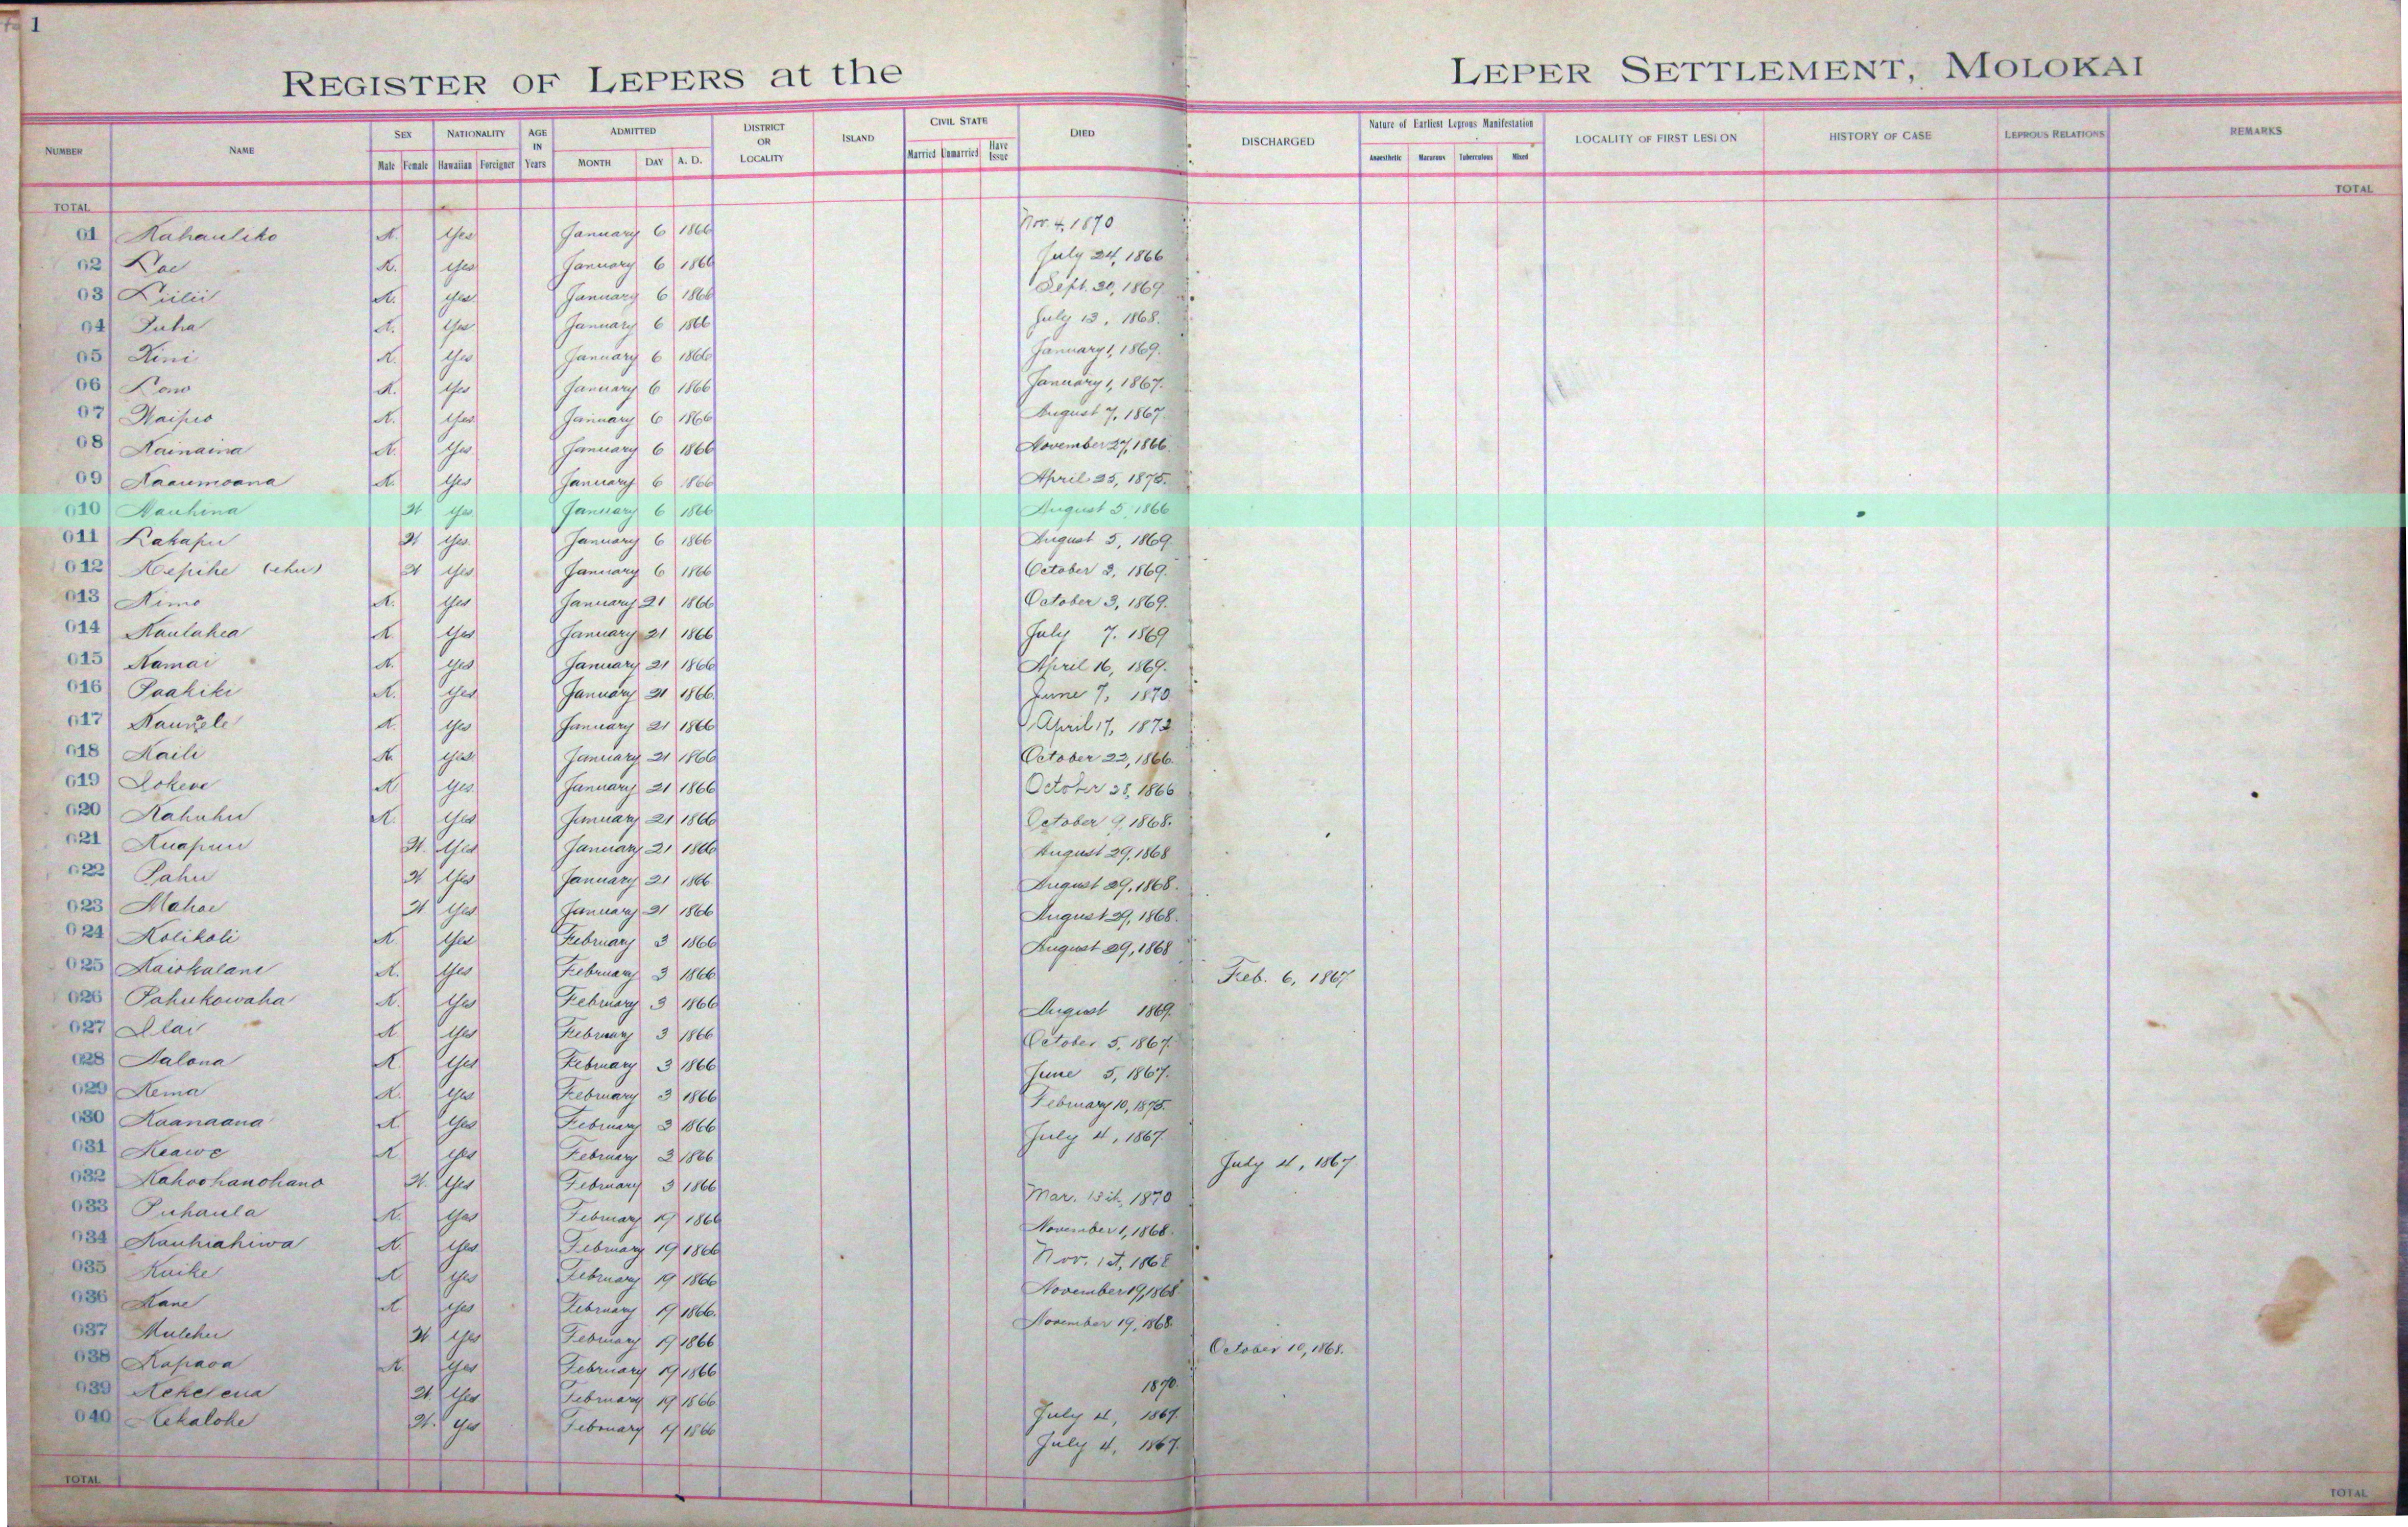 1
REGISTER OF LEPERS at the LEPER SETTLEMENT, MOLOKAI
NUMBER NAME SEX NATIONALITY AGE IN Years ADMITTED DISTRICT OR LOCALITY ISLAND CIVIL STATE DIED DISCHARGED Nature of Earliest Leprous Manifestation LOCALITY OF FIRST LESION HISTORY OF CASE LEPROUS RELATIONS REMARKS
Male Female Hawaiian Foreigner MONTH DAY A. D. Married Unmarried Have Issue Anaesthetic Macurous Tuberculous Mixed
TOTAL TOTAL
01 Kahauliko K. Yes January 6 1866 Nov. 4, 1870
02 Kae K. Yes January 6 1866 July 24, 1866
03 Liilii K. Yes January 6 1866 Sept. 30, 1869.
04 Puha K. Yes January 6 1866 July 13, 1868.
05 Kini K. Yes January 6 1866 January 1, 1869.
06 Lono K. Yes January 6 1866 January 1, 1867.
07 Waipio K. Yes January 6 1866 August 7, 1867.
08 Kainaina K. Yes January 6 1866 November 27, 1866.
09 Kaaumoana K. Yes January 6 1866 April 25, 1875.
010 Nauhina W Yes January 6 1866 August 5, 1866
011 Lakapu W Yes January 6 1866 August 5, 1869.
012 Kepihe (ehu) W Yes January 6 1866 October 2, 1869.
013 Kimo K. Yes January 21 1866 October 3, 1869.
014 Kaulahea K. Yes January 21 1866 July 7. 1869
015 Kamai K. Yes January 21 1866 April 16, 1869.
016 Paakiki K. Yes January 21 1866 June 7, 1870
017 Kauwele K. Yes January 21 1866 April 17, 1872
018 Kaili K. Yes January 21 1866 October 22, 1866.
019 Lokene K Yes January 21 1866 October 28, 1866
020 Kahuhu K. Yes January 21 1866 October 9, 1868.
021 Kuapuu W. Yes January 21 1866 August 29, 1868
022 Pahu W Yes January 21 1866 August 29, 1868.
023 Mahoe W Yes January 21 1866 August 29, 1868.
024 Kolikoli K Yes February 3 1866 August 29, 1868
025 Kaiokalani K. Yes February 3 1866 Feb. 6, 1867
026 Pahukowaha K. Yes February 3 1866 August 1869.
027 Ilai K Yes February 3 1866 October 5, 1867.
028 Kalona K. Yes February 3 1866 June 5, 1867.
029 Kema K. Yes February 3 1866 February 10, 1875.
030 Kaanaana K Yes February 3 1866 July 4, 1867.
031 Keawe K Yes February 3 1866 July 4, 1867
032 Kahoohanohano W. Yes February 3 1866 Mar. 13th, 1870
033 Puhaula K. Yes February 19 1866 November 1, 1868.
034 Kauhiahiwa K. Yes February 19 1866 Nov. 1st, 1868
035 Kaike K Yes February 19 1866 November 19, 1868
036 Kane K Yes February 19 1866. November 19, 1868.
037 Mulehu W Yes February 19 1866 October 10, 1868.
038 Kapaoa K. Yes February 19 1866 1870.
039 Kekelena W. Yes February 19 1866 July 4, 1867.
040 Kekalohe W. Yes February 19 1866 July 4, 1867.
TOTAL TOTAL